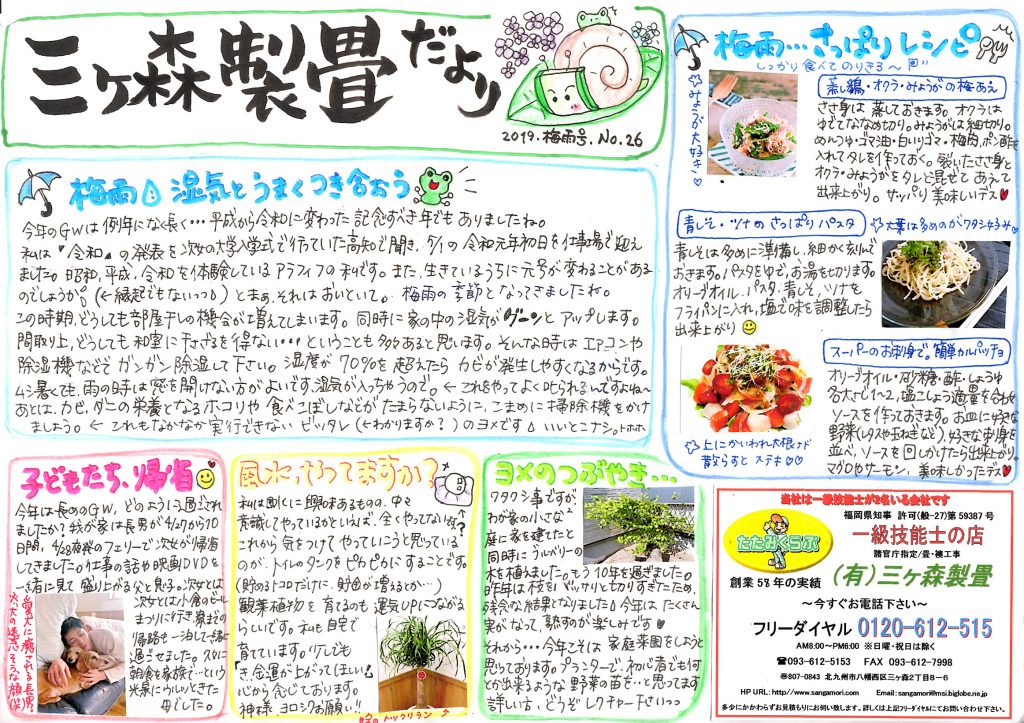 三ヶ森製畳だより
2019.梅雨号.No.26
梅雨 湿気とうまくつき合おう
今年のGWは例年になく長く…平成から令和に変わった記念すべき年でもありましたね。
私は『令和』の発表を次女の大学入学式で行っていた高知で聞き、夕イの令和元年初日を仕事場で迎え
ました。昭和、平成、令和を体験しているアラフィフの私です。また、生きているうちに元号が変わることがある
のでしょうか。(←縁起でもないっつ)とまぁ、それはおいといて。梅雨の季節となってきましたね。
この時期、どうしても部屋干しの機会が増えてしまいます。同時に家の中の湿気がグーンとアップします。
間取り上、どうしても和室に干さざるを得ない…ということも多々あると思います。そんな時はエアコンや
除湿機などでガンガン除湿して下さい。湿度が70%を超えたらカビが発生しやすくなるからです。
ムシ暑くても、雨の時は窓を開けない方がよいです。湿気が入っちゃうので。←これをやってよく叱られるんですよね〜
あとは、カビ、ダニの栄養となるホコリや食べこぼしなどがたまらないように、こまめに掃除機をかけ
ましょう。←これもなかなか実行できないビッタレ(←わかりますか?)のヨメです いいとこナシ。トホホ
梅雨…さっぱりレシピ
しっかり食べてのりきろ〜
☆みょうが大好き♡
蒸し鶏・オクラ・みょうがの梅あえ
ささ身は蒸しておきます。オクラは
ゆでてななめ切り。みょうがは細切り。
めんつゆ・ゴマ油・白いりゴマ・梅肉、ポン酢を
入れてタレを作っておく。裂いたささ身と
オクラ・みょうがをタレと混ぜてあえって
出来上がり。サッパリ美味しいデス♥
青じそ・ツナのさっぱりパスタ
☆大葉は多めのがワタシ好み♡
青じそは多めに準備し、細かく刻んで
おきます。パスタをゆで、お湯を切ります。
オリーブオイル、パスタ、青じそ、ツナを
フライパンに入れ、塩で味を調整したら
出来上がり
スーパーのお刺身で。簡単カルパッチョ
オリーブオイル・砂糖・酢・しょうゆ
各大さじ1〜2、塩こしょう適量を合わせ
ソースを作っておきます。お皿に好きな
野菜(レタスや玉ねぎなど)、好きな刺身を
並べ、ソースを回しかけたら出来上がり。
マグロやサーモン、美味しかったデス♥
☆上にかいわれ大根など
散らすとステキ♡♡
子どもたち、帰省
今年は長めのGW、どのように過ごされ
ましたか?我が家は長男が4/27から10
日間、4/28夜発のフェリーで次女が帰省
してきました。仕事の話や映画DVDを
一緒に見て盛り上がる父と息子。次女とは
次女とは小倉のビール
まつりに行き、寮までの
帰路も一泊して一緒に
過ごせました。久々に
朝食を家族で…という
光景にウルッときた
母でした。
愛犬に癒される長男
犬の迷惑そうな顔(笑)
風水、やってますか?
私は風水に興味あるものの、中々
意識してやっているかといえば、全くやってない…
これから気をつけてやっていこうと思っている
のが、トイレのタンクをピカピカにすることです。
(貯めるトコロだけに、貯金が増えるとか…)
観葉植物を育てるのも運気UPにつながる
らしいです。私も自宅で
育てています。少しでも
「き、金運が上がってほしい!」
心から念じております。
神様、ヨロシクお願い!!
トックリラン
ヨメのつぶやき…
ワタクシ事ですが
わが家の小さな
庭に家を建てたと
同時にブルーベリーの
木を植えました。もう10年を過ぎました。
昨年は枝をバッサリと切りすぎたため、
残念な結果となりました 今年はたくさん
実がなって、熟すのが楽しみです♥
それから…今年こそは家庭菜園をしようと
思っております。プランターで、初心者でも何
とか出来るような野菜の苗を…と思ってます
詳しい方、どうぞレクチャー下さいっっ
当社は一級技能士が2名いる会社です
福岡県知事 許可(般-27)第59387号
一級技能士の店
諸官庁指定/畳・襖工事
たたみくらぶ
創業58年の実績
(有)三ヶ森製畳
〜今すぐお電話下さい〜
フリーダイヤル 0120-612-515
AM8:00〜PM6:00 ※日曜・祝日は除く
☎093-612-5153 FAX 093-612-7998
〒807-0843 北九州市八幡西区三ヶ森2丁目8-6
HP URL: http://www.sangamori.com Email: sangamori@msi.biglobe.ne.jp
多少にかかわらずお見積もりにお伺い致します。詳しくは上記フリーダイヤルにてお問い合わせ下さい。